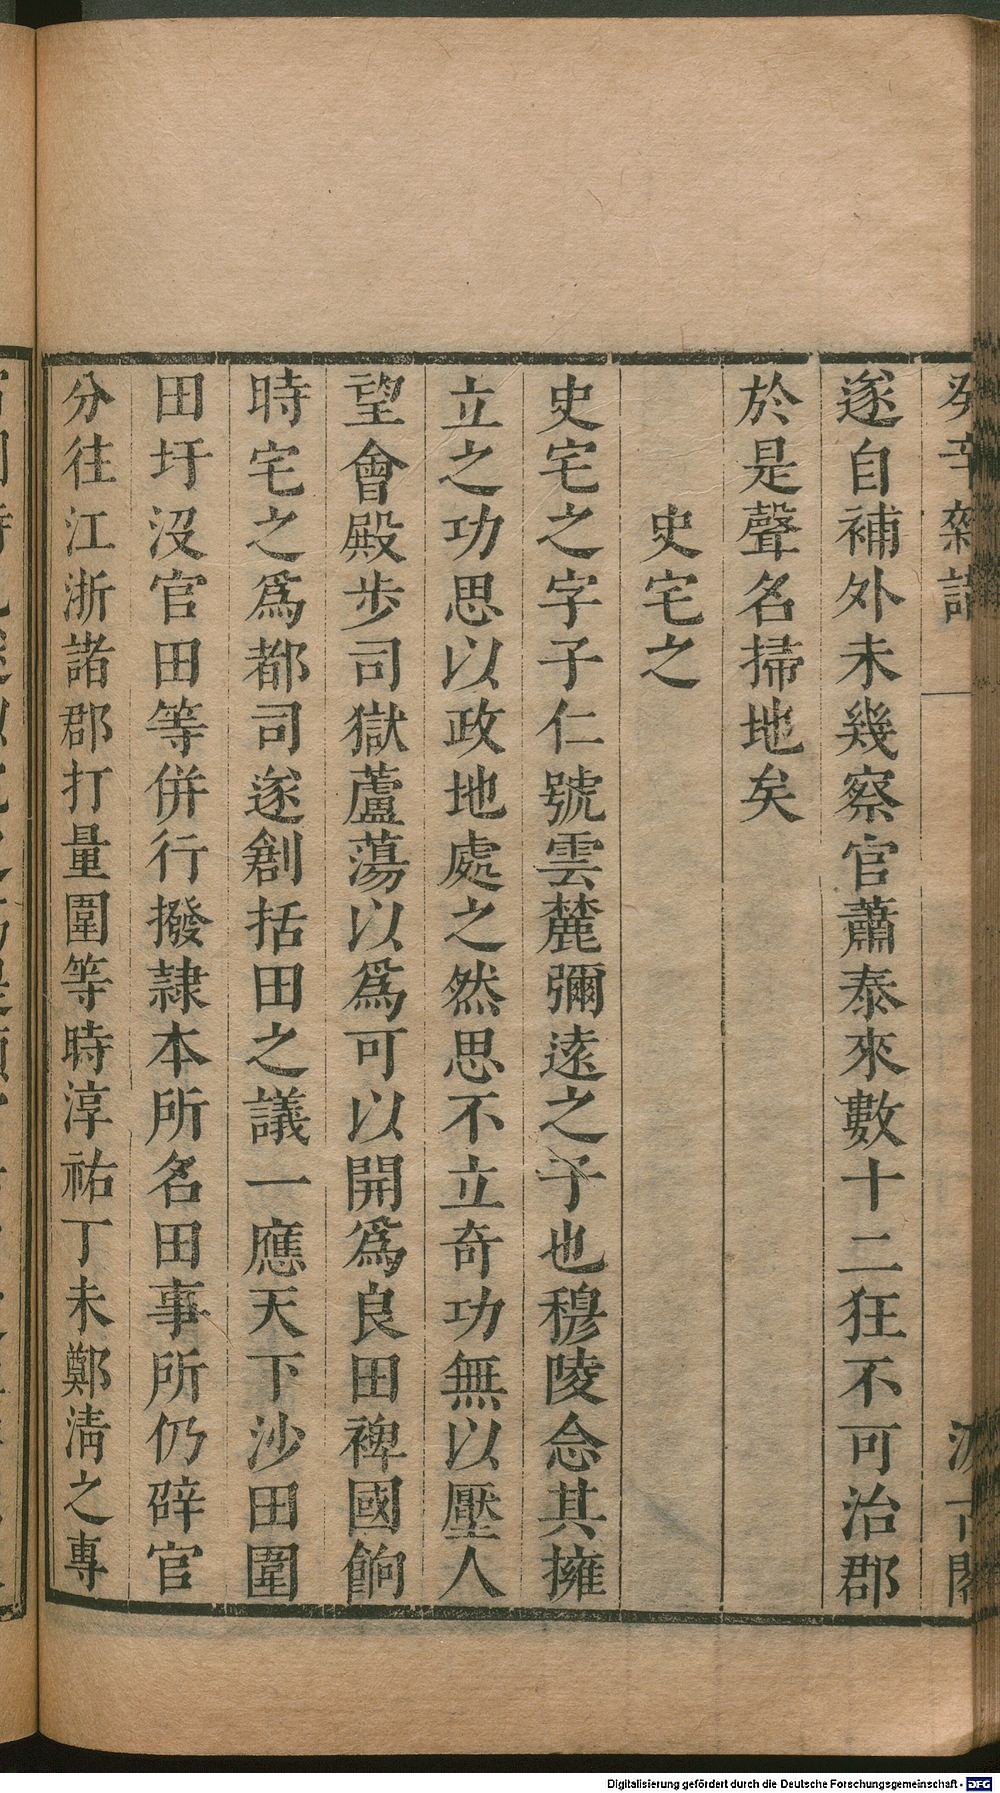 癸辛雜識
汲古閣
遂自補外未幾察官蕭泰來數十二狂不可治郡
於是聲名掃地矣
史宅之
史宅之字子仁號雲麓彌遠之子也穆陵念其擁
立之功思以政地處之然思不立奇功無以壓人
望會殿步司獄蘆蕩以爲可以開爲良田裨國餉
時宅之爲都司遂創括田之議一應天下沙田圍
田圩沒官田等併行撥隷本所名田事所仍辟官
分往江浙諸郡打量圍等時淳祐丁未鄭淸之專
Digitalisierung gefördert durch die Deutsche Forschungsgemeinschaft - DFG